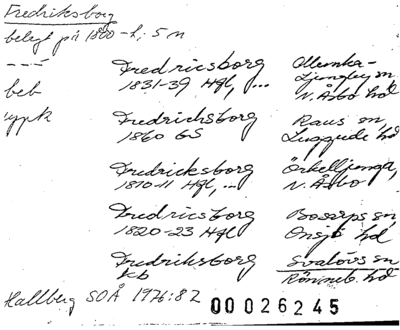 Fredriksborg
belagt på 1800-t, 5 n
Fredricsborg Ottenka-
1831-39 Hfl, ... Ljungby sn
beb N. Åsbo hd
Fredrichsborg Raus sn,
1860 GS Luggude hd
Fredricksborg Örkelljunga,
1810-11 Hfl, ... N. Åsbo
Fredricsborg Bosarps sn,
1820-23 Hfl Onsjö hd
Fredriksborg Svalövs sn
kb Rönneb. hd
Hallberg SOÅ 1976:82
00026245